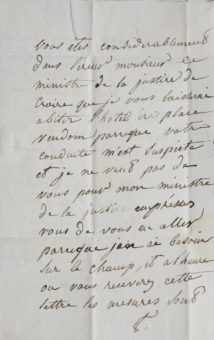 vous êtes considerablement
dans l'ereur monsieur le
ministr de la justice de
croire que je vous laisserai
abiter l'hotel de place
vendom parceque votre
conduite m'est suspecte
et je ne veut pas de
vous pour mon ministre
de la justice empresez
vous de vous en aller
parceque j'en ai besoin
sur le champ, et a l'heure
ou vous recevrez cette
lettre les mesures sont